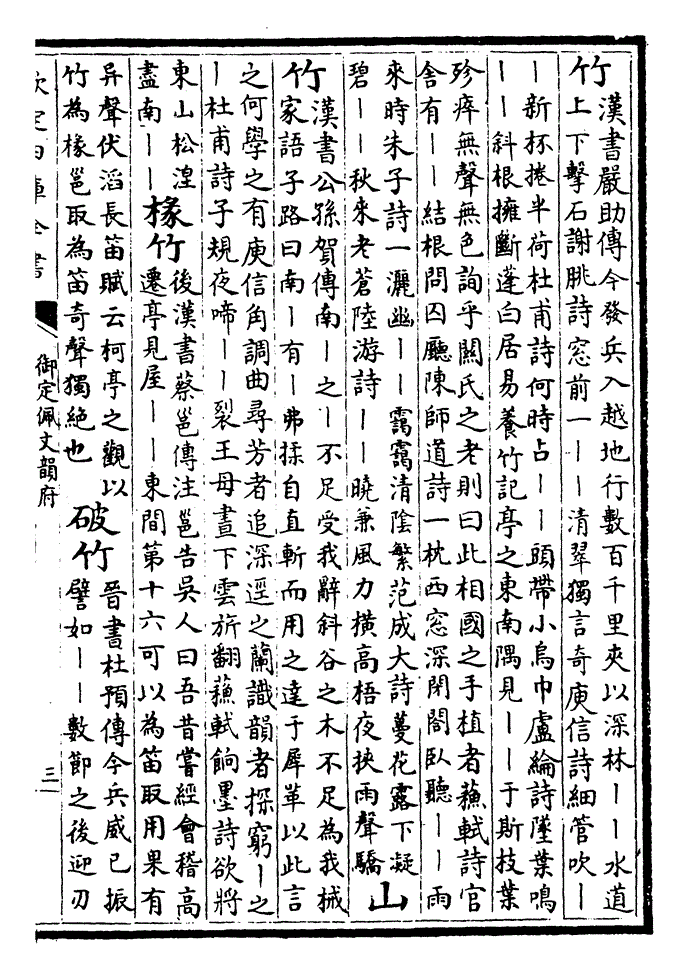 竹
漢書嚴助傳今發兵入越地行數百千里夾以深林丨丨水道
上下擊石謝朓詩窓前一丨丨清翠獨言奇庾信詩細管吹丨
丨新杯捲半荷杜甫詩何時占丨丨頭帶小烏巾盧綸詩墜葉鳴
丨丨斜根擁斷蓬白居易養竹記亭之東南隅見丨丨于斯枝葉
殄瘁無聲無色詢乎關氏之老則曰此相國之手植者蘓軾詩官
舍有丨丨結根問囚廳陳師道詩一枕西窓深閉閣臥聽丨丨雨
來時朱子詩一灑幽丨丨靄靄清陰繁范成大詩蔓花露下凝
碧丨丨秋來老蒼陸游詩丨丨曉兼風力橫高梧夜挾雨聲驕
山
竹
漢書公孫賀傳南丨之丨不足受我辭斜谷之木不足為我械
家語子路曰南丨有丨弗揉自直斬而用之達于犀革以此言
之何學之有庾信角調曲尋芳者追深逕之蘭識韻者探窮丨之
丨杜甫詩子規夜啼丨丨裂王母晝下雲旂翻蘓軾餉墨詩欲將
東山松湼
盡南丨丨
椽竹
後漢書蔡邕傳注邕告吳人曰吾昔嘗經會稽高
遷亭見屋丨丨東間第十六可以為笛取用果有
异聲伏滔長笛賦云柯亭之觀以
竹為椽邕取為笛奇聲獨絶也
破竹
晉書杜預傳今兵威已振
譬如丨丨數節之後迎刃
欽定四庫全書
御定佩文韻府
三